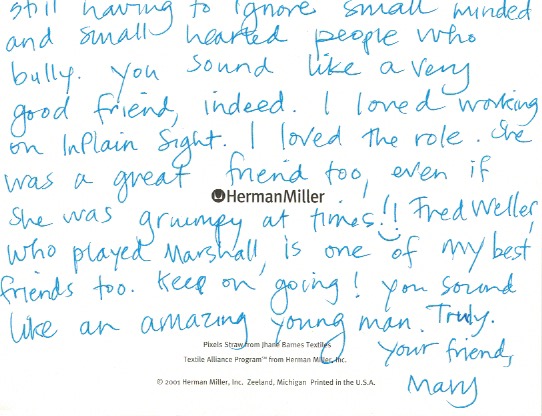 still having to ignore small minded
and small hearted people who
bully. You sound like a very
good friend, indeed. I loved working
on InPlain Sight. I loved the role. She
was a great friend too, even if
HermanMiller
she was grumpy at times!! Fred Weller,
who played Marshall, is one of my best
friends too. Keep on going! You sound
like an amazing young man. Truly.
Pixels Straw from Jhane Barnes Textiles
your friend,
Textile Alliance Program℠ from Herman Miller, Inc.
© 2001 Herman Miller, Inc. Zeeland, Michigan Printed in the U.S.A.
Mary